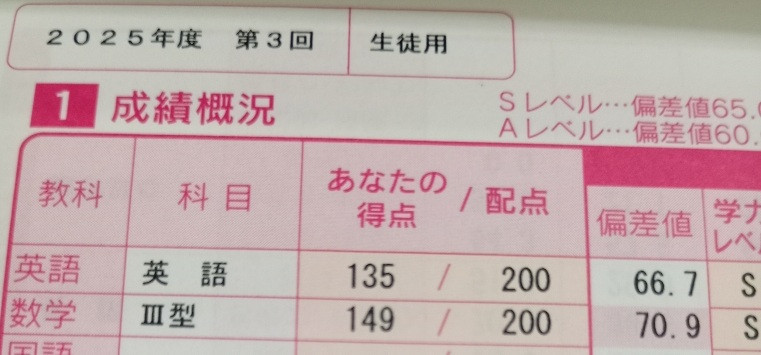 2025年度 第3回 生徒用
1 成績概況
Sレベル…偏差値65.
Aレベル…偏差値60.
教科 科目 あなたの得点 / 配点 偏差値 学力レベ
英語 英語 135 / 200 66.7 S
数学 Ⅲ型 149 / 200 70.9 S
国語